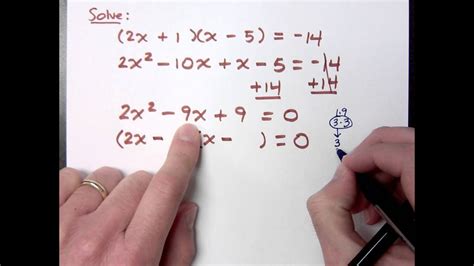 Solve:
(2x + 1)(x − 5) = −14
2x² − 10x + x − 5 = −14
+14 +14
2x² − 9x + 9 = 0
(2x − x − ) = 0
1·9
3·3
3